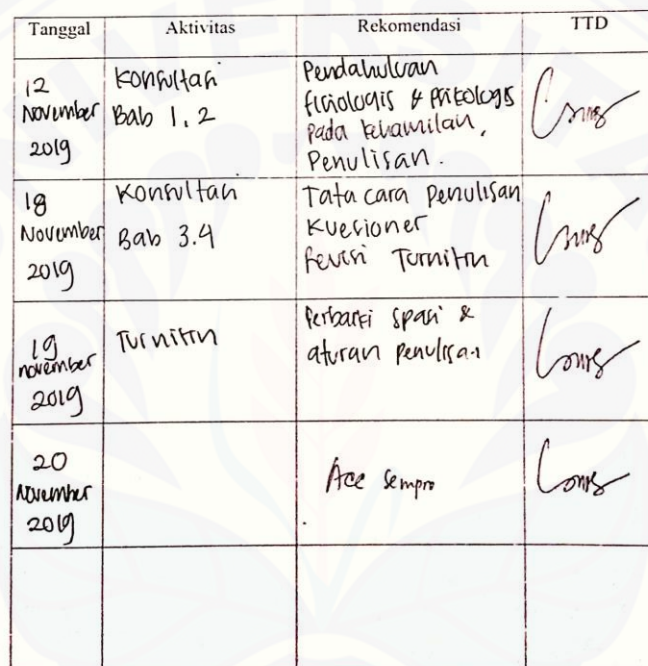 Tanggal Aktivitas Rekomendasi TTD
12 November 2019
Konsultasi
Bab 1, 2
Pendahuluan
fisiologis & psikologis
pada kehamilan,
Penulisan.
18 November 2019
Konsultasi
Bab 3.4
Tata cara penulisan
Kuesioner
Revisi Turnitin
19 november 2019
Turnitin
Perbaiki spasi &
aturan penulisan
20 November 2019
Acc Sempro